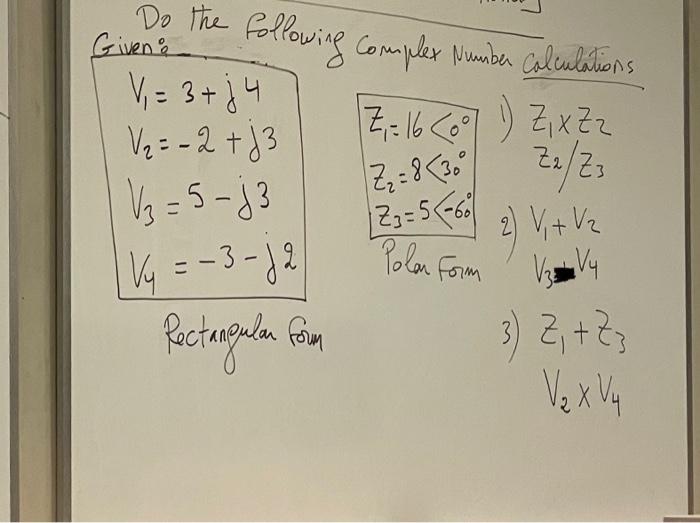 Do the Following Complex Number Calculations
Given:
V₁ = 3 + j4
V₂ = -2 + j3
V₃ = 5 - j3
V₄ = -3 - j2
Rectangular form
Z₁ = 16 <0°
Z₂ = 8 <30°
Z₃ = 5 <-60°
Polar Form
1) Z₁ x Z₂
Z₂/Z₃
2) V₁ + V₂
V₃ - V₄
3) Z₁ + Z₃
V₂ x V₄